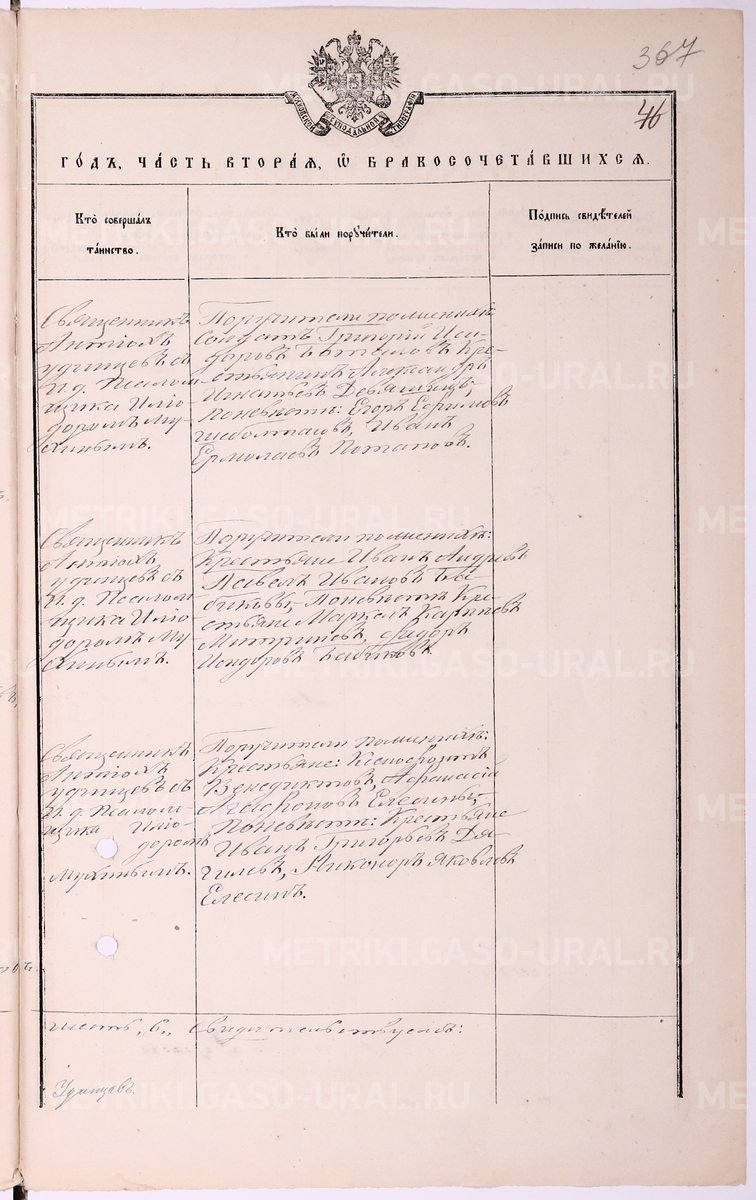 367
46
МОСКОВСКОЙ СѴНОДАЛЬНОЙ ТИПОГРАФІИ
ГО́ДЪ, ЧА́СТЬ ВТОРА́Я, Ѡ҆ БРАКОСОЧЕТА́ВШИХСЯ.
Кто̀ соверша́лъ
та́инство.
Кто̀ бы́ли порꙋчи́тели.
По́дпись свидѣ́телей
за́писи по жела́нїю.
Священникъ
Антіохъ
Удинцевъ съ
И. д. Псалом-
щика Иліо-
доромъ Му-
хинымъ.
Поручители по женихѣ
Солдатъ Григорій Иси-
доровъ Кре-
стьянинъ Александръ
Игнатьевъ
По невѣстѣ: Егоръ Ефимовъ
Иванъ
Ермолаевъ Потаповъ.
Священникъ
Антіохъ
Удинцевъ съ
И. д. Псалом-
щика Иліо-
доромъ Му-
хинымъ.
Поручители по женихѣ:
Крестьяне Иванъ Андреевъ
Павелъ Ивановъ Ба-
биковы, По невѣстѣ Кре-
стьяне Маркелъ Карповъ
Ѳедоръ
Бабиковъ.
Священникъ
Антіохъ
Удинцевъ съ
И. д. Псалом-
щика Иліо-
доромъ
Мухинымъ.
Поручители по женихѣ:
Крестьяне: Ксенофонтъ
Венедиктовъ, Афанасій
Агафоновъ Елесины,
По невѣстѣ: Крестьяне
Иванъ Григорьевъ Дя-
гилевъ, Никоноръ Яковлевъ
Елесинъ.
шесть „6„ свидѣтельствуемъ:
Удинцевъ.
METRIKI.GASO-URAL.RU